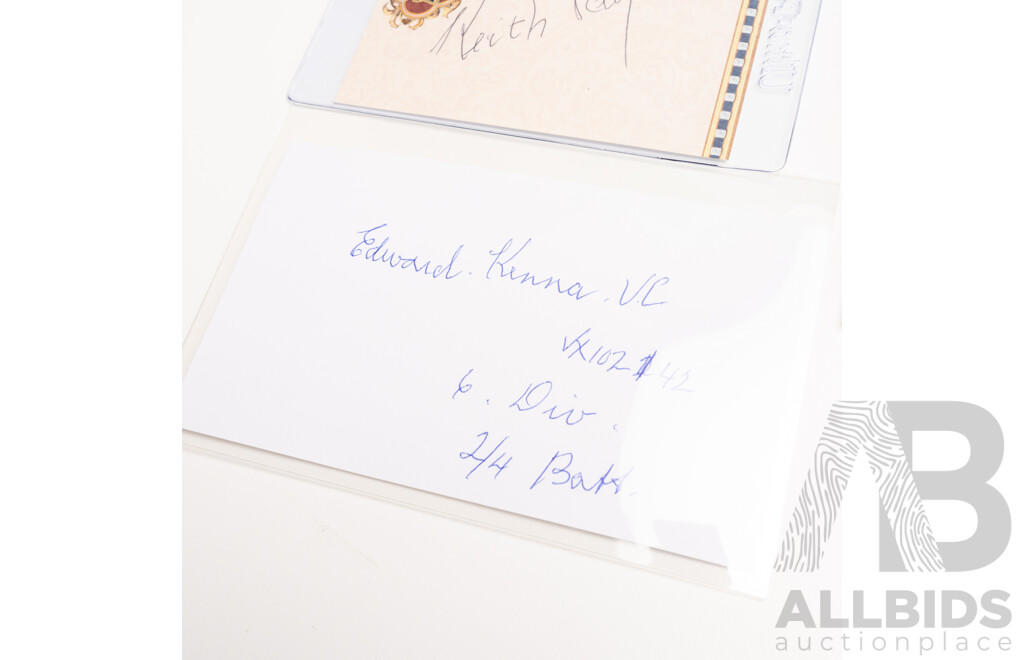 Keith
Edward. Kenna. V.C
VX102142
6. Div.
2/4 Batt.
AB
ALLBIDS
auctionplace